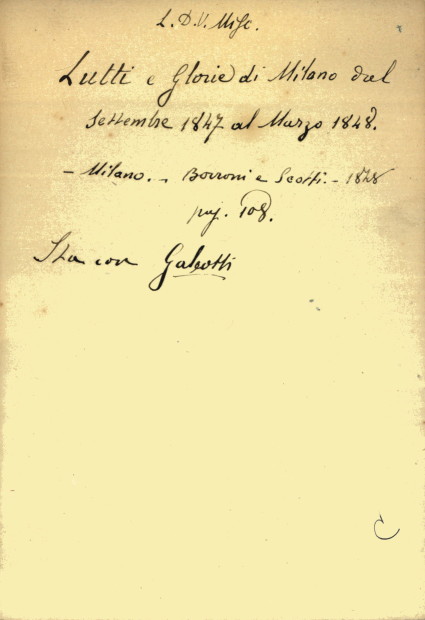 L. D. V. Misc.
Lutti e Glorie di Milano dal
Settembre 1847 al Marzo 1848.
- Milano. - Borroni e Scotti. - 1848
pag. 108.
Sta con Galeotti
C